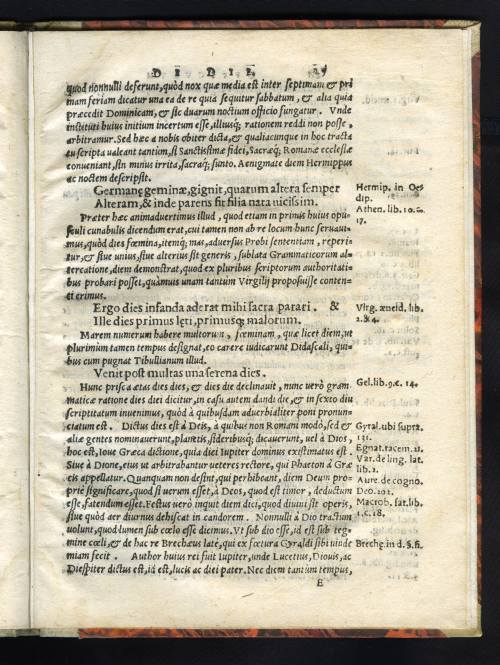 DE DIE.
quod nonnulli deserunt, quòd nox quæ media est inter septimam & pri
mam feriam dicatur una ea de re quia sequitur sabbatum, & alia quia
præcedit Dominicam, & sic duarum noctium officio fungatur. Vnde
instituti huius initium incertum esse, illiusq; rationem reddi non posse,
arbitramur. Sed hæc à nobis obiter dicta, & qualiacunque in hoc tracta
tu scripta ualeant tantùm, si Sanctissimæ fidei, Sacræq; Romanæ ecclesiæ
conueniant, sin minus irrita, sacraq; sunto. Aenigmate diem Hermippus
ac noctem descripsit.
Germanæ geminæ, gignit, quarum altera semper
Alteram, & inde parens fit filia nata uicissim.
Hermip. in Oe
dip.
Athen. lib. 10. c.
17.
Præter hæc animaduertimus illud, quod etiam in primis huius opu-
sculi cunabulis dicendum erat, cui tamen non ab re locum hunc seruaui-
mus, quòd dies fœmina, itemq; mas, aduersus Probi sententiam, reperi-
tur, & siue unius, siue alterius sit generis, sublata Grammaticorum al-
tercatione, idem demonstrat, quod ex pluribus scriptorum authoritati-
bus probari posset, quāmuis unam tantum Virgilij proposuisse conten-
ti erimus.
Ergo dies infanda aderat mihi sacra parari. &
Ille dies primus leti, primusq; malorum.
Virg. æneid. lib.
2. & 4.
Marem numerum habere multorum, fœminam, quæ licet diem, ut
plurimùm tamen tempus designat, eo carere iudicarunt Didascali, qui-
bus cum pugnat Tibullianum illud.
Venit post multas una serena dies.
Hunc prisca ætas dies dies, & dies die declinauit, nunc uerò gram-
maticæ ratione dies diei dicitur, in casu autem dandi die, & in sexto diu
scriptitatum inuenimus, quòd à quibusdam aduerbialiter poni pronun-
ciatum est. Dictus dies est à Deis, à quibus non Romani modò, sed &
aliæ gentes nominauerunt, planetis, sideribusq; dicauerunt, uel à Dios,
hoc est, Ioue Græca dictione, quia diei Iupiter dominus existimatus est.
Siue à Dione, eius ut arbitrabantur ueteres rectore, qui Phaeton à Græ
cis appellatur. Quanquam non desint, qui perhibeant, diem Deum pro-
priè significare, quod si uerum esset, à Deos, quod est timor, deductum
esse, fatendum esset. Festus uerò inquit diem dici, quod diuini sit operis,
siue quòd aer diurnus dehiscat in candorem. Nonnulli à Dio tractum
uolunt, quod lumen sub cœlo esse dicimus. Vt sub dio esse, id est sub teg-
mine cœli, & de hac re Brechæus latè, qui ex fœtura Gyraldi sibi uinde
miam fecit. Author huius rei fuit Iupiter, unde Lucetius, Diouis, ac
Diespiter dictus est, id est, lucis ac diei pater. Nec diem tantùm tempus,
Gel. lib. 9. c. 14.
Gyral. ubi supra.
131.
Egnat. racem. 11.
Var. de ling. lat.
lib. 2.
Aure. de cogno.
Deo. 102.
Macrob. sat. lib.
1. c. 18.
Brech. in d. §. fi.
E